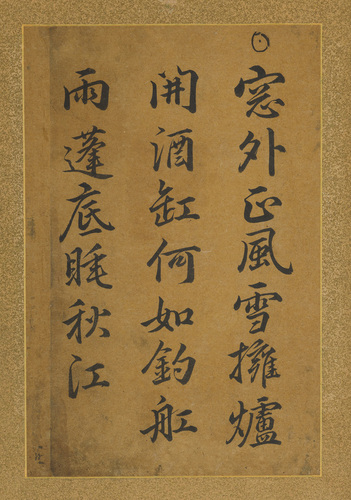 窓外正風雪擁爐
開酒缸何如釣舡
雨蓬底睡秋江